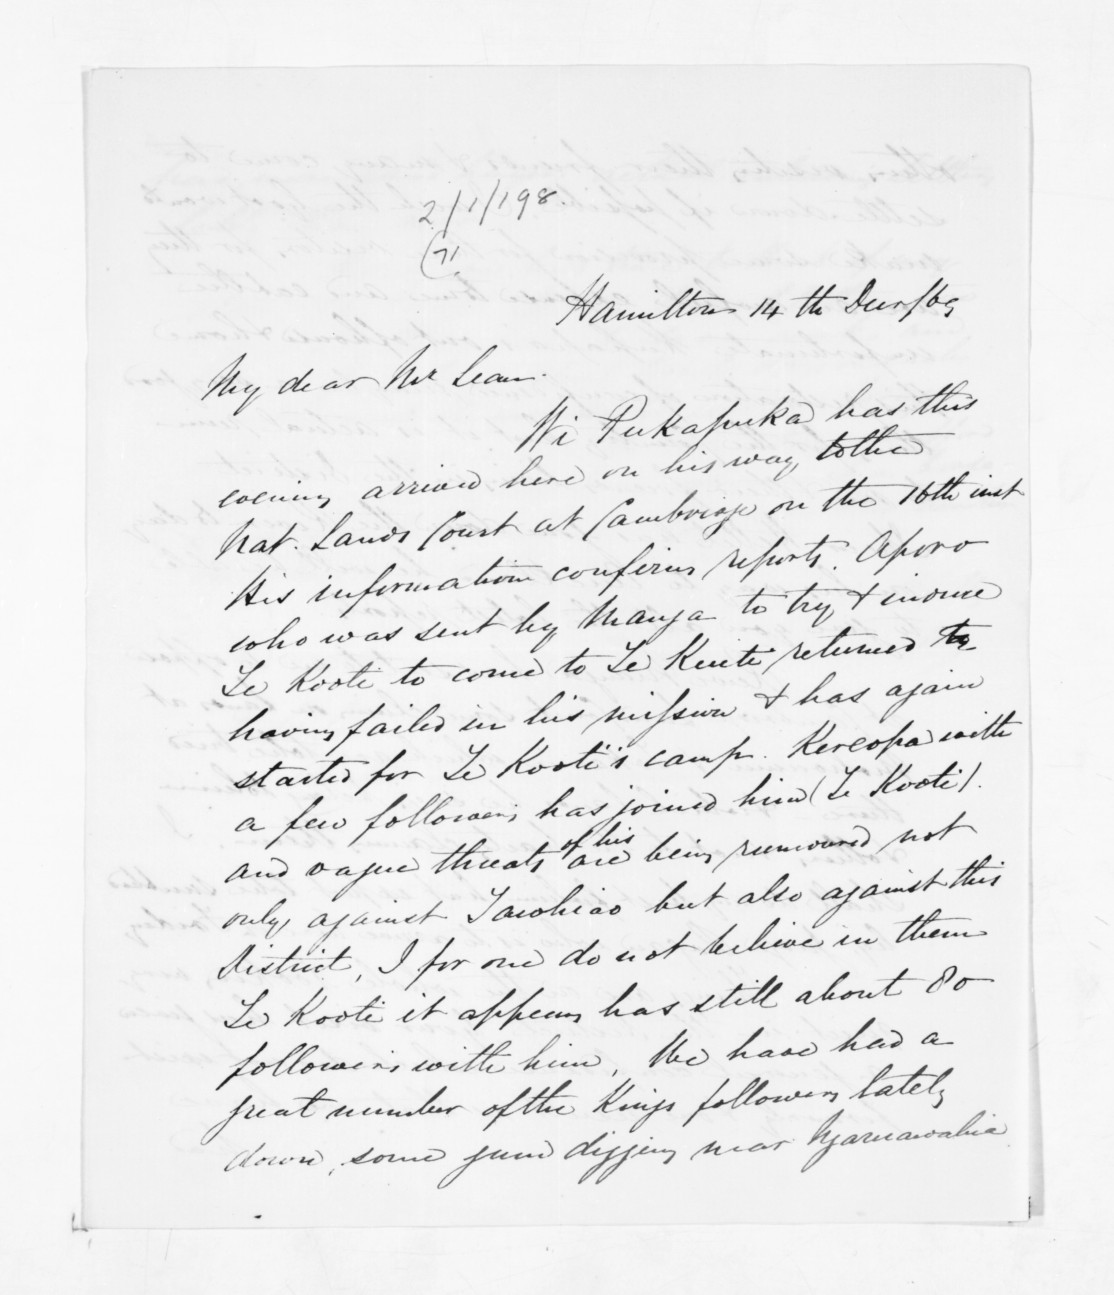 2/1/198
(71
Hamilton 14th Decr/69
My dear Mr Lean.
Wi Pukapuka has this
evening arrived here on his way to the
Nat. Lands Court at Cambridge on the 16th inst
His information confirms reports. Aporo
who was sent by Manga to try & induce
Te Kooti to come to Te Kuiti returned
having failed in his mission & has again
started for Te Kooti's camp. Kereopa with
a few followers has joined him (Te Kooti).
and vague threats of his are being rumoured not
only against Tawhiao but also against this
District, I for one do not believe in them
Te Kooti it appears has still about 80
followers with him, We have had a
great number of the Kings followers lately
down, some gum digging near Ngaruawahia